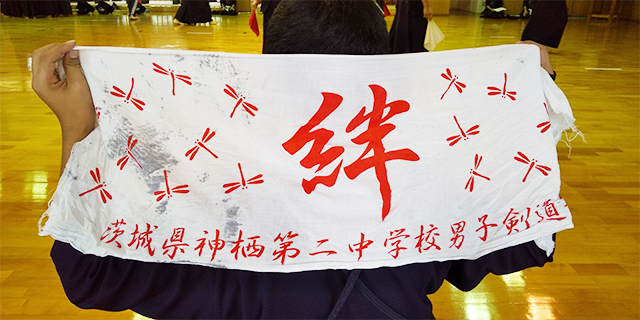 絆
茨城県神栖第二中学校男子剣道